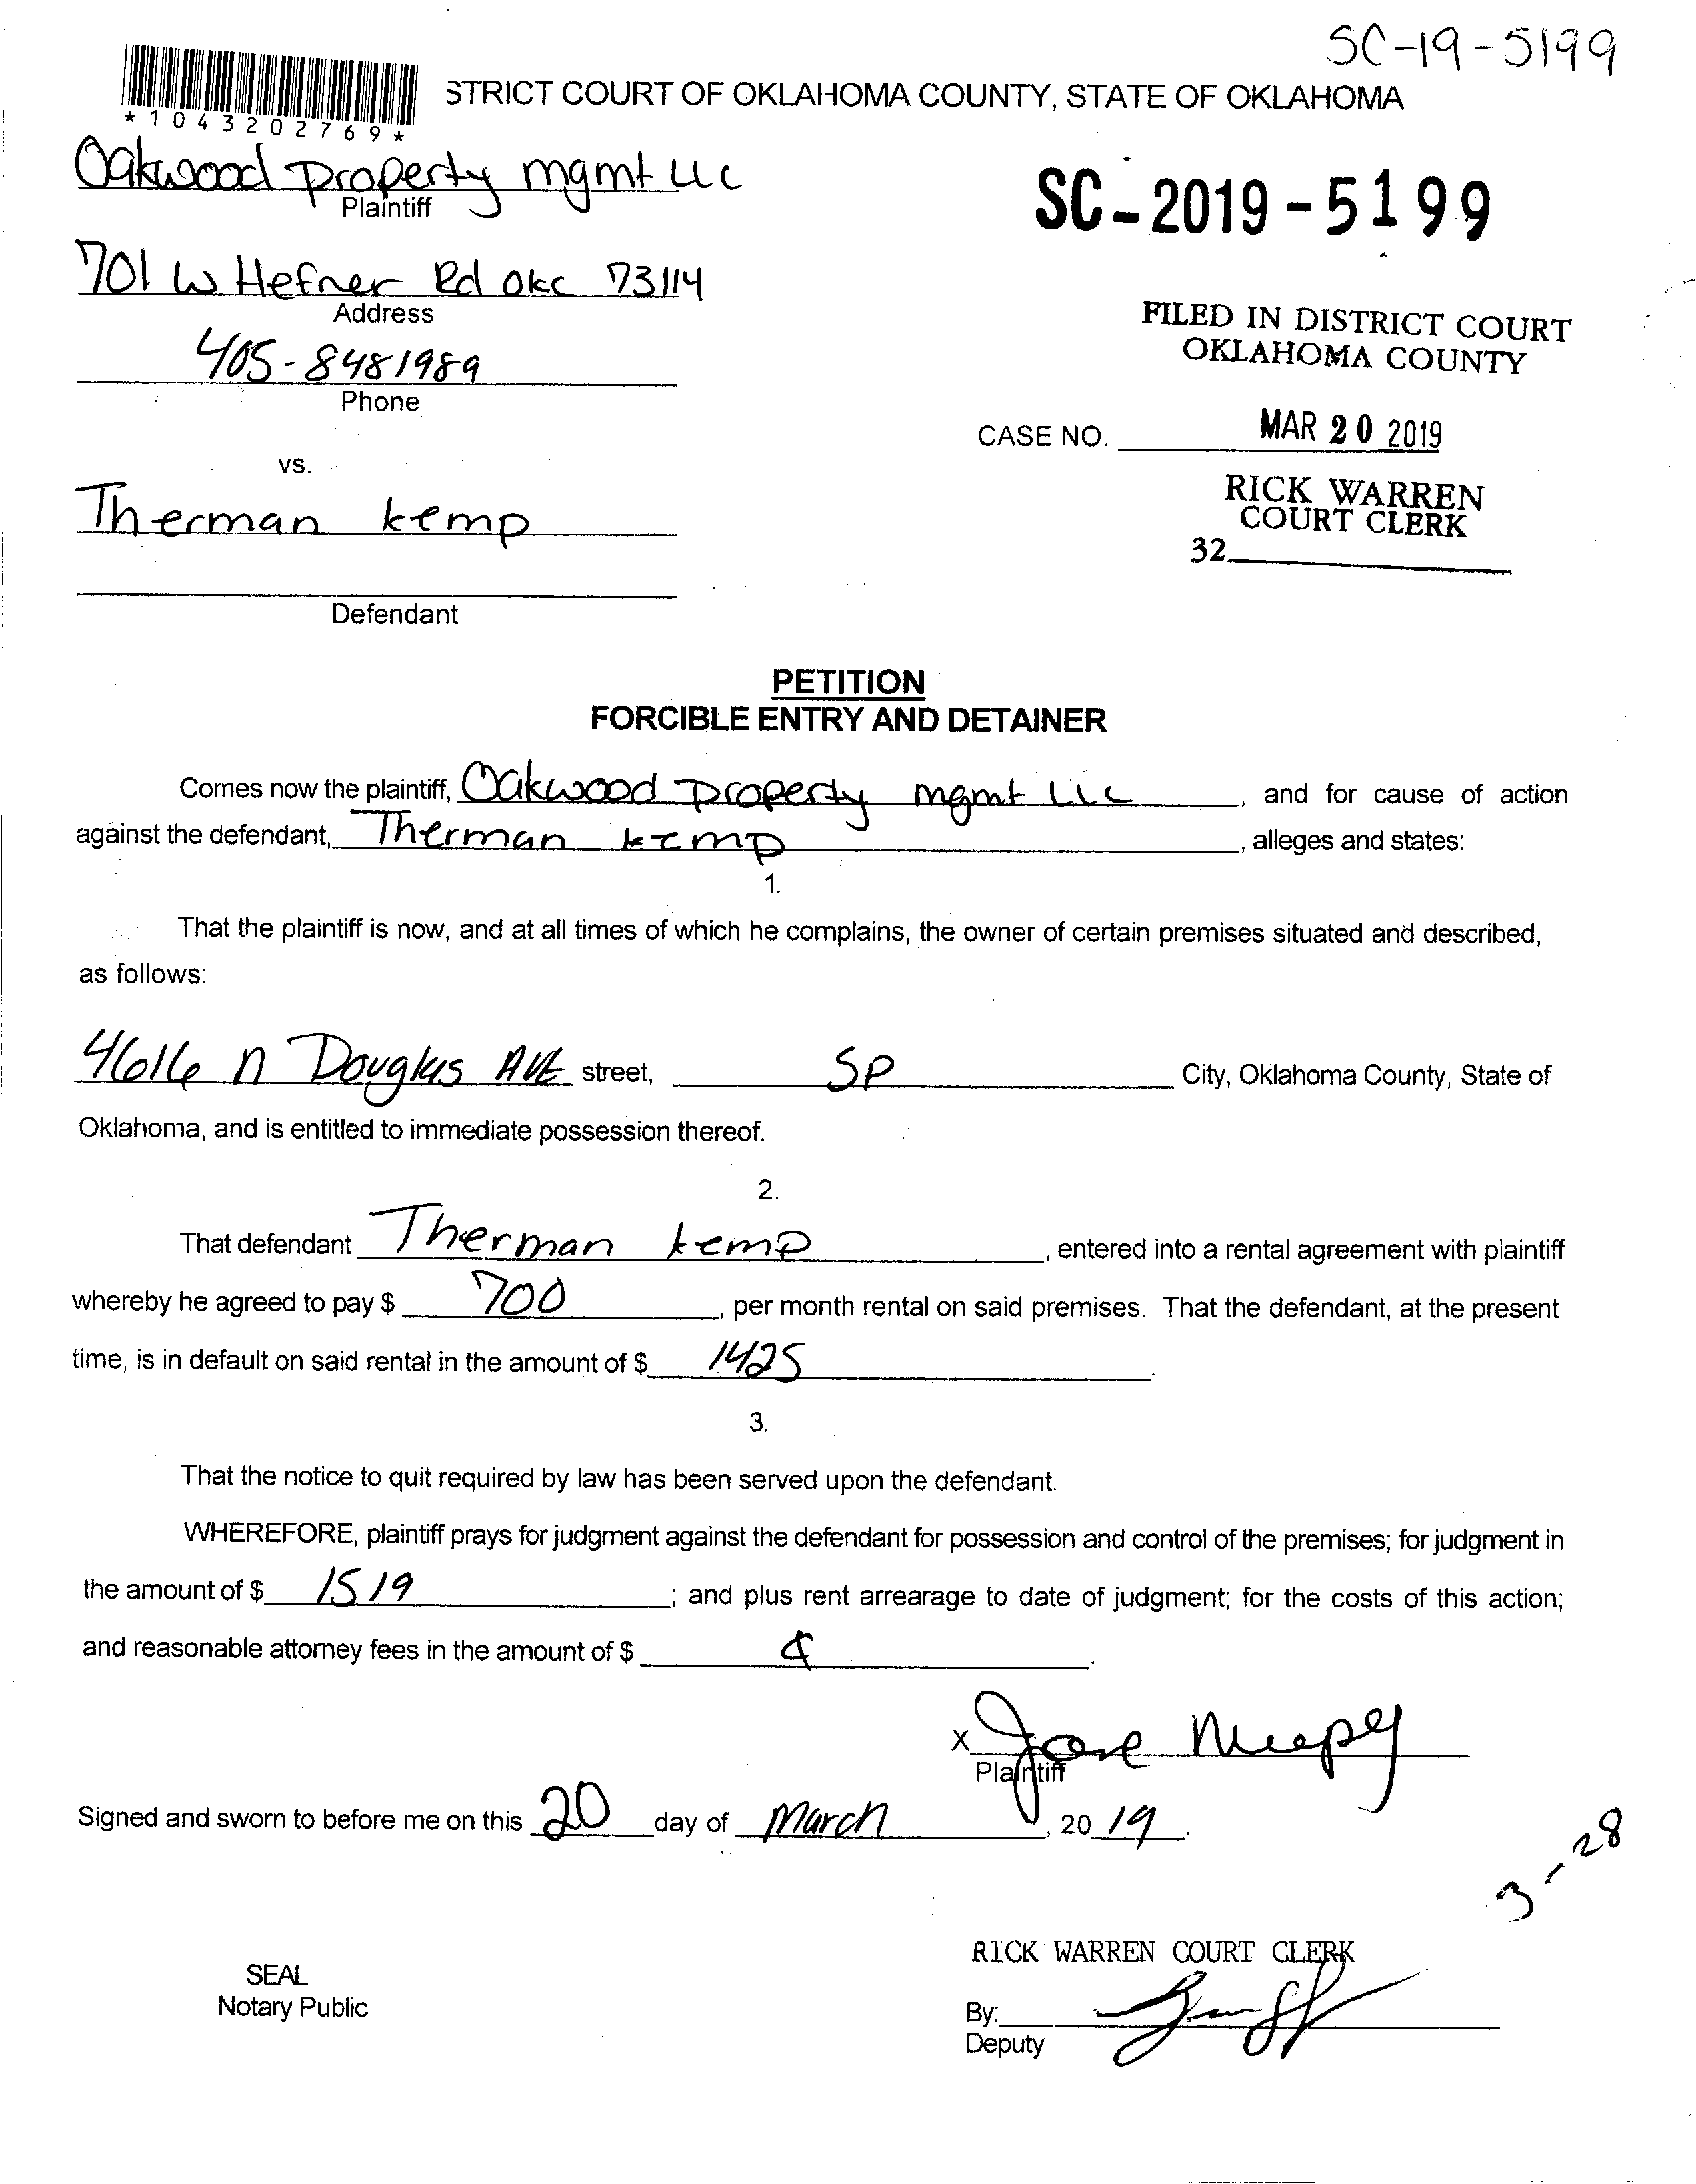 SC-19-5199
STRICT COURT OF OKLAHOMA COUNTY, STATE OF OKLAHOMA
*1043202769*
Oakwood Property mgmt LLC
Plaintiff
SC-2019-5199
701 W Hefner Rd OKC 73114
Address
FILED IN DISTRICT COURT
OKLAHOMA COUNTY
405-8481989
Phone
CASE NO. MAR 20 2019
vs.
RICK WARREN
COURT CLERK
Therman kemp
32
Defendant
PETITION
FORCIBLE ENTRY AND DETAINER
Comes now the plaintiff, Oakwood Property mgmt LLC, and for cause of action
against the defendant, Therman kemp, alleges and states:
1.
That the plaintiff is now, and at all times of which he complains, the owner of certain premises situated and described,
as follows:
4616 n Douglas AVE street, SP City, Oklahoma County, State of
Oklahoma, and is entitled to immediate possession thereof.
2.
That defendant Therman kemp, entered into a rental agreement with plaintiff
whereby he agreed to pay $ 700, per month rental on said premises. That the defendant, at the present
time, is in default on said rental in the amount of $ 1425.
3.
That the notice to quit required by law has been served upon the defendant.
WHEREFORE, plaintiff prays for judgment against the defendant for possession and control of the premises; for judgment in
the amount of $ 1519; and plus rent arrearage to date of judgment; for the costs of this action;
and reasonable attorney fees in the amount of $ .
x
Plaintiff
Signed and sworn to before me on this 20 day of March, 20 19.
3-28
RICK WARREN COURT CLERK
SEAL
Notary Public
By:
Deputy